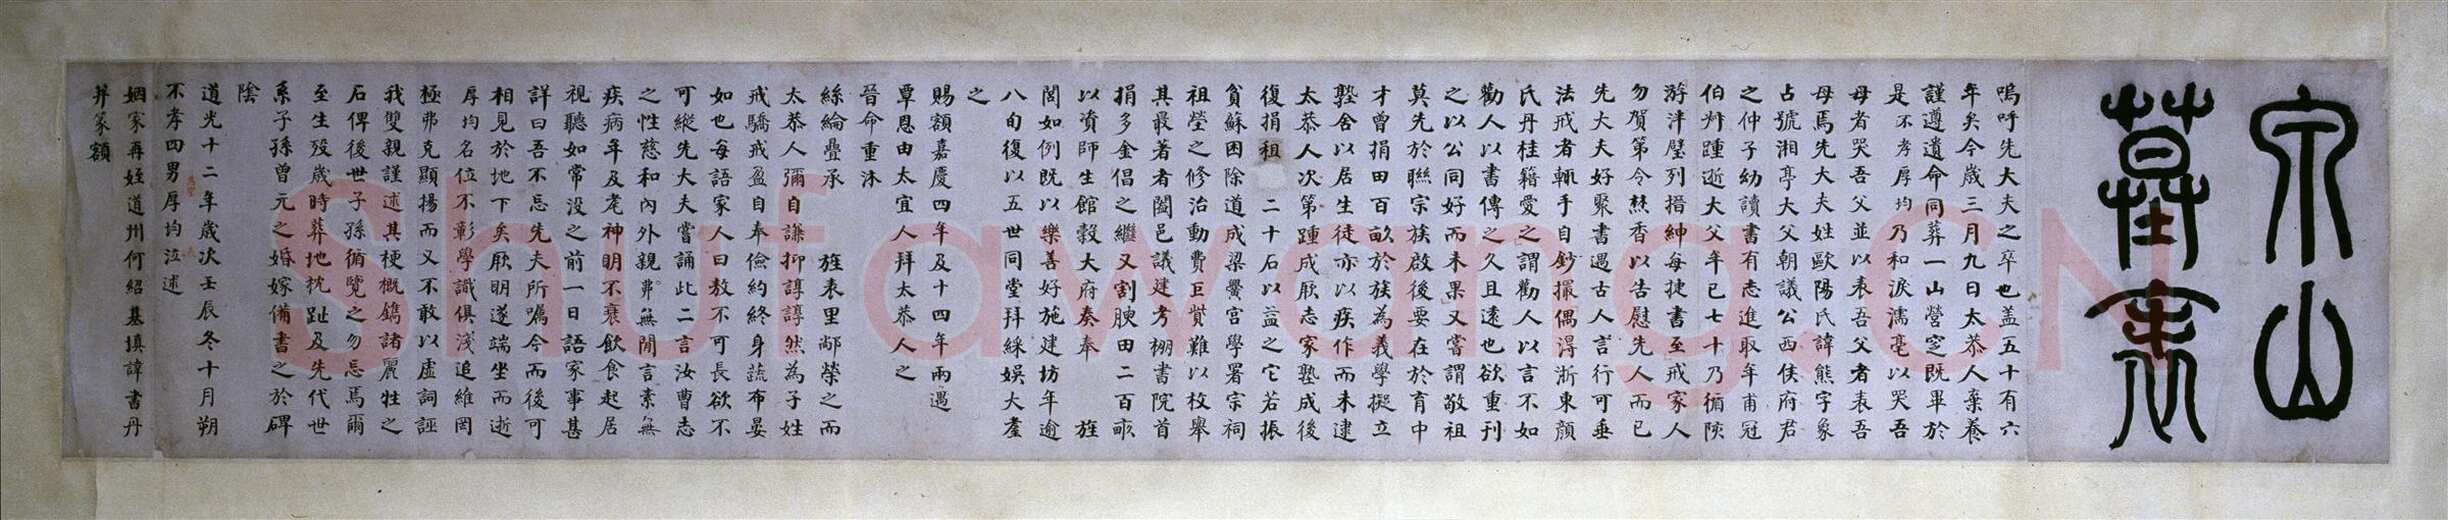 宗山
墓表
嗚呼先大夫之卒也蓋五十有六
年矣今歲三月九日太恭人棄養
謹遵遺命同葬一山營窆既畢於
是不孝厚均乃和淚濡毫以哭吾
母者哭吾父並以表吾父者表吾
母焉先大夫姓歐陽氏諱熊字象
占號湘亭大父朝議公西侯府君
之仲子幼讀書有志進取年甫冠
伯艸踵逝大父年已七十乃循陔
游泮璧列搢紳每捷書至戒家人
勿賀第令爇香以告慰先人而已
先大夫好聚書遇古人言行可垂
法戒者輒手自鈔撮偶得浙東顏
氏丹桂籍愛之謂勸人以言不如
勸人以書傳之久且遠也欲重刊
之以公同好而未果又嘗謂敬祖
莫先於聯宗族啟後要在於育中
才曾捐田百畝於族為義學擬立
塾舍以居生徒亦以疾作而未逮
太恭人次第踵成厥志家塾成後
復捐租二十石以益之它若振
貧蘇困除道成梁黌宮學署宗祠
祖塋之修治動費巨貲難以枚舉
其最著者闔邑議建考棚書院首
捐多金倡之繼又割腴田二百畝
以資師生館穀大府奏奉 旌
閭如例既以樂善好施建坊年逾
八旬復以五世同堂拜綵娛大耋
之
賜額嘉慶四年及十四年兩遇
覃恩由太宜人拜太恭人之
晉命重沐
絲綸疊承 旌表里鄰榮之而
太恭人彌自謙抑諄諄然為子姓
戒驕戒盈自奉儉約終身蔬布晏
如也每語家人曰敖不可長欲不
可縱先大夫嘗誦此二言汝曹志
之性慈和內外親弗無閒言素無
疾病年及耄神明不衰飲食起居
視聽如常沒之前一日語家事甚
詳曰吾不忘先夫所囑今而後可
相見於地下矣厥明遂端坐而逝
厚均名位不彰學識俱淺追維罔
極弗克顯揚而又不敢以虛詞誣
我雙親謹述其梗概鐫諸麗牲之
石俾後世子孫循覽之勿忘焉爾
至生歿歲時葬地枕趾及先代世
系子孫曾元之婚嫁備書之於碑
陰
道光十二年歲次壬辰冬十月朔
不孝四男厚均泣述
姻家再姪道州何紹基填諱書丹
并篆額
Shufawang.CN